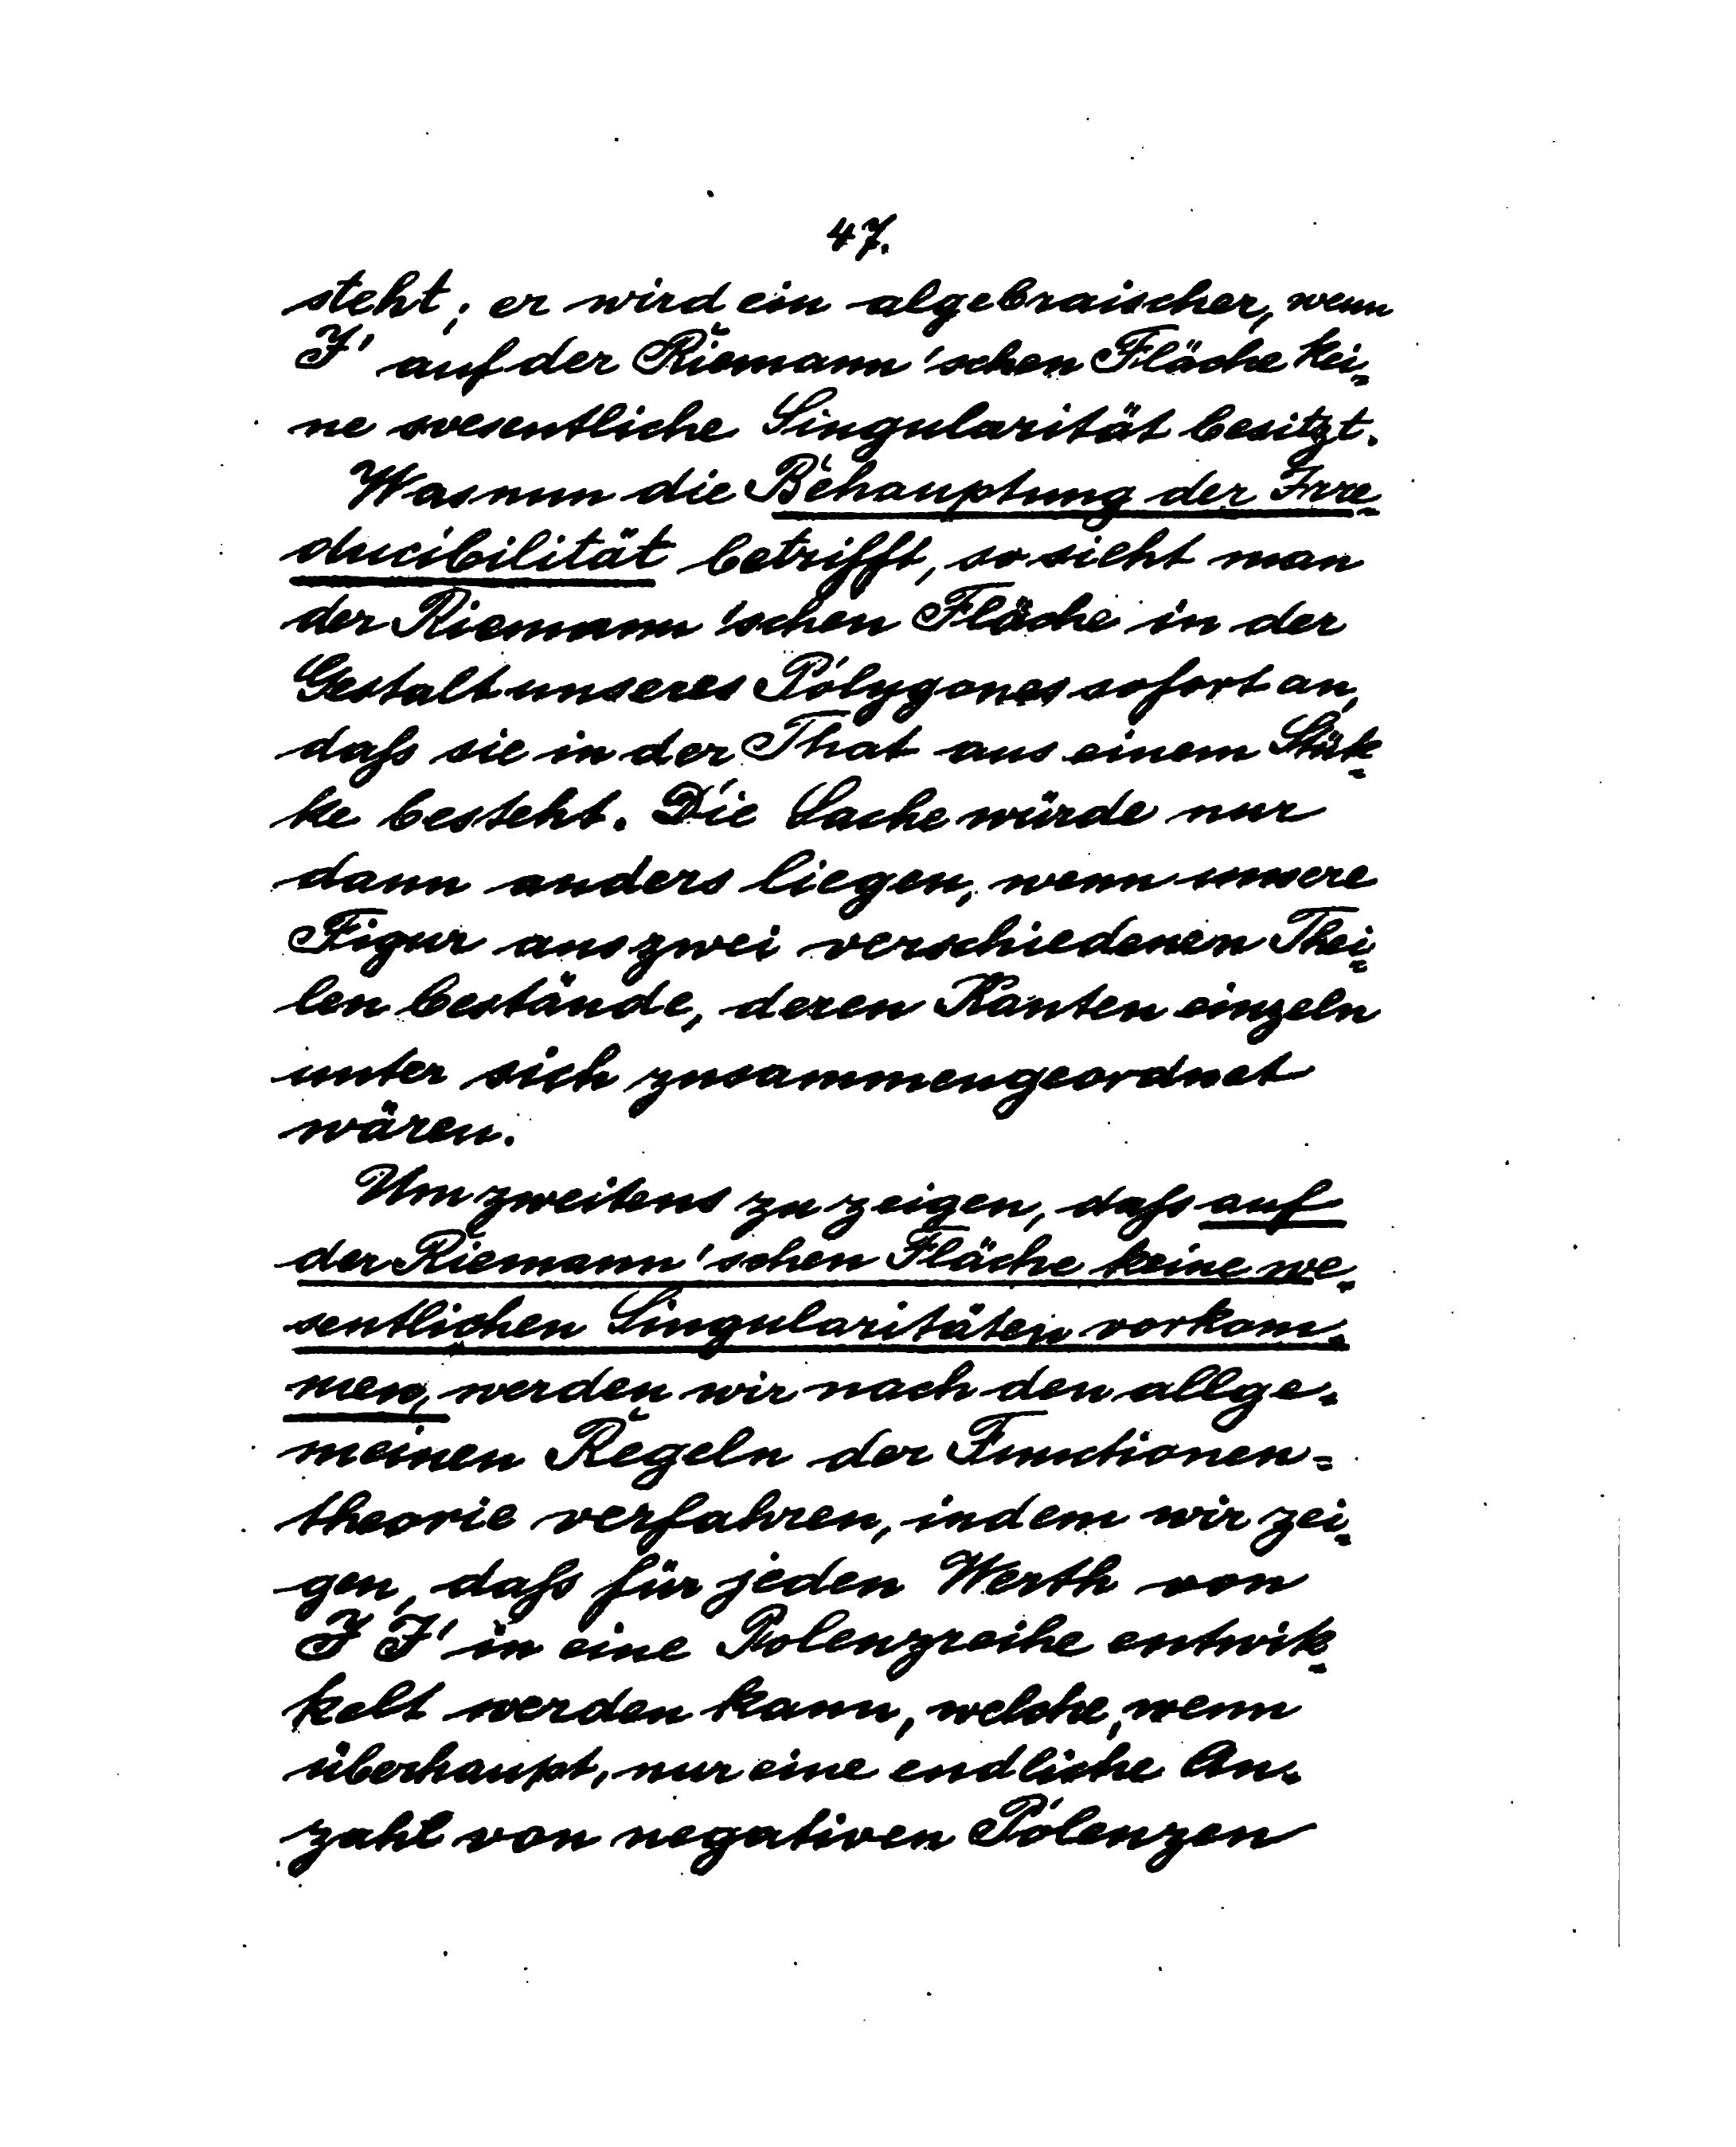 47.
steht; er wird ein algebraischer, wenn
J' auf der Riemann'schen Fläche kei=
ne wesentliche Singularität besitzt.
Was nun die Behauptung der Irre=
ducibilität betrifft, so sieht man
der Riemann'schen Fläche in der
Gestalt unseres Polygones sofort an,
daß sie in der That aus einem Stük=
ke besteht. Die Sache würde nur
dann anders liegen, wenn unsere
Figur aus zwei verschiedenen Thei=
len bestände, deren Kanten einzeln
unter sich zusammengeordnet
wären.
Um zweitens zu zeigen, daß auf
der Riemann'schen Fläche keine we=
sentlichen Singularitäten vorkom=
men, werden wir nach den allge=
meinen Regeln der Functionen=
theorie verfahren, indem wir zei=
gen, daß für jeden Werth von
J J' in eine Potenzreihe entwik=
kelt werden kann, welche, wenn
überhaupt, nur eine endliche An=
zahl von negativen Potenzen